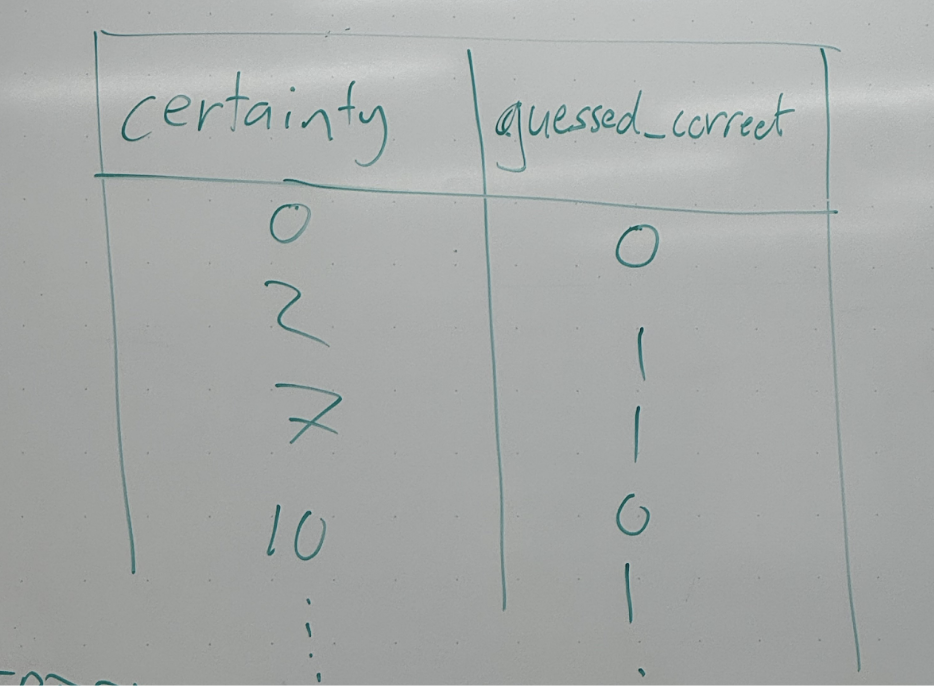 certainty guessed_correct
0 0
2 1
7 1
10 0
1